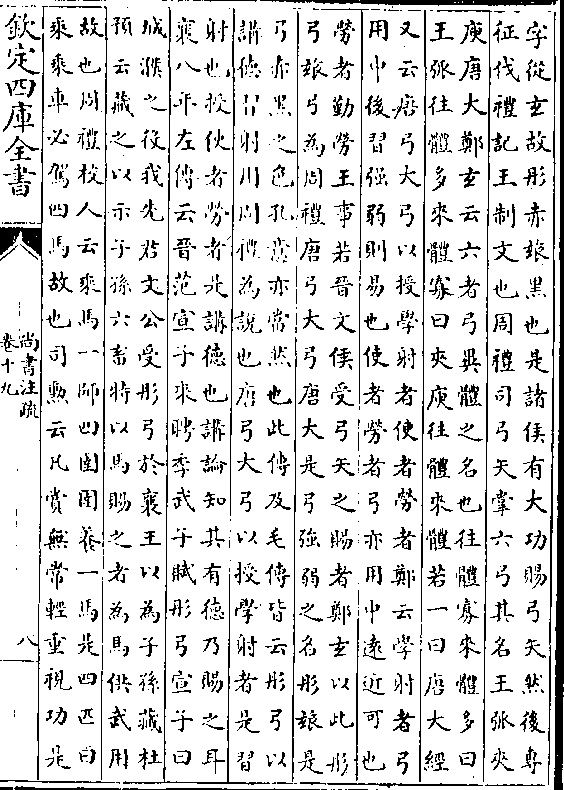 字從玄故彤赤玈黑也是諸侯有大功賜弓矢然後專
征伐禮記王制文也周禮司弓矢掌六弓其名王弧夾
庾唐大鄭玄云六者弓異體之名也往體寡來體多曰
王弧往體多來體寡曰夾庾往體來體若一曰唐大經
又云唐弓大弓以授學射者使者勞者鄭云學射者弓
用中後習强弱則易也使者勞者弓亦用中遠近可也
勞者勤勞王事若晉文侯受弓矢之賜者鄭玄以此彤
弓玈弓為周禮唐弓大弓唐大是弓強弱之名彤玈是
弓赤黑之色孔意亦當然也此傳及毛傳皆云彤弓以
講德習射用周禮為說也唐弓大弓以授學射者是習
射也授使者勞者是講德也講論知其有德乃賜之耳
襄八年左傳云晉范宣子來聘季武子賦彤弓宣子曰
城濮之役我先君文公受彤弓於襄王以為子孫藏杜
預云藏之以示子孫六畜特以馬賜之者為馬供武用
故也周禮校人云乘馬一師四圉圉養一馬是四匹曰
乘乘車必駕四馬故也司勲云凡賞無常輕重視功是
欽定四庫全書
尚書注疏
卷十九
八